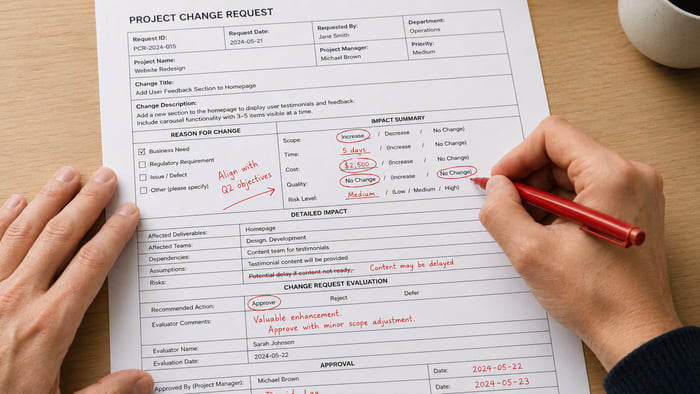 PROJECT CHANGE REQUEST
Request ID: Request Date: Requested By: Department:
PCR-2024-015 2024-05-21 Jane Smith Operations
Project Name: Project Manager: Priority:
Website Redesign Michael Brown Medium
Change Title:
Add User Feedback Section to Homepage
Change Description:
Add a new section to the homepage to display user testimonials and feedback.
Include carousel functionality with 3–5 items visible at a time.
REASON FOR CHANGE
Business Need
Regulatory Requirement
Issue / Defect
Other (please specify)
Align with
Q2 objectives
IMPACT SUMMARY
Scope: Increase / Decrease / No Change)
Time: 5 days / (Increase / No Change)
Cost: $2,500 / (Increase / No Change)
Quality: No Change / (Increase / No Change)
Risk Level: Medium / (Low / Medium / High)
DETAILED IMPACT
Affected Deliverables: Homepage
Affected Teams: Design, Development
Dependencies: Content team for testimonials
Assumptions: Testimonial content will be provided
Risks: Potential delay if content not ready. Content may be delayed
CHANGE REQUEST EVALUATION
Recommended Action: Approve Reject Defer
Evaluator Comments: Valuable enhancement.
Approve with minor scope adjustment.
Evaluator Name: Sarah Johnson
Evaluation Date: 2024-05-22
APPROVAL
Approved By (Project Manager): Michael Brown Date: 2024-05-22
Date: 2024-05-23